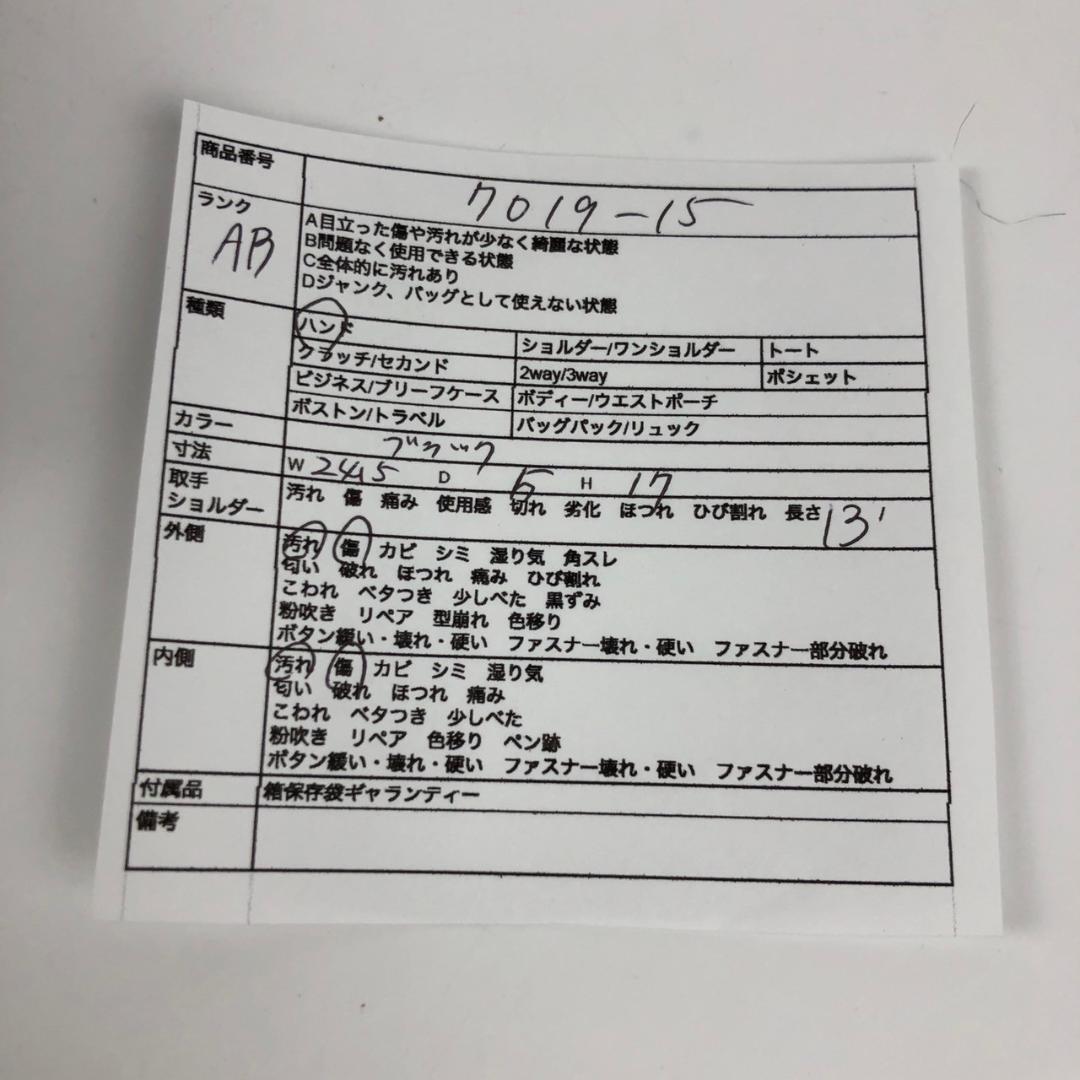 商品番号 7019-15
ランク AB
A目立った傷や汚れが少なく綺麗な状態
B問題なく使用できる状態
C全体的に汚れあり
Dジャンク、バッグとして使えない状態
種類 ハンド ショルダー/ワンショルダー トート
クラッチ/セカンド 2way/3way ポシェット
ビジネス/ブリーフケース ボディー/ウエストポーチ
ボストン/トラベル バッグパック/リュック
カラー ブラック
寸法 W 24.5 D H 17
取手 汚れ 傷 痛み 使用感 切れ 劣化 ほつれ ひび割れ 長さ 13
ショルダー
外側 汚れ 傷 カビ シミ 湿り気 角スレ
匂い 破れ ほつれ 痛み ひび割れ
こわれ ベタつき 少しべた 黒ずみ
粉吹き リペア 型崩れ 色移り
ボタン緩い・壊れ・硬い ファスナー壊れ・硬い ファスナー部分破れ
内側 汚れ 傷 カビ シミ 湿り気
匂い 破れ ほつれ 痛み
こわれ ベタつき 少しべた
粉吹き リペア 色移り ペン跡
ボタン緩い・壊れ・硬い ファスナー壊れ・硬い ファスナー部分破れ
付属品 箱保存袋ギャランティー
備考